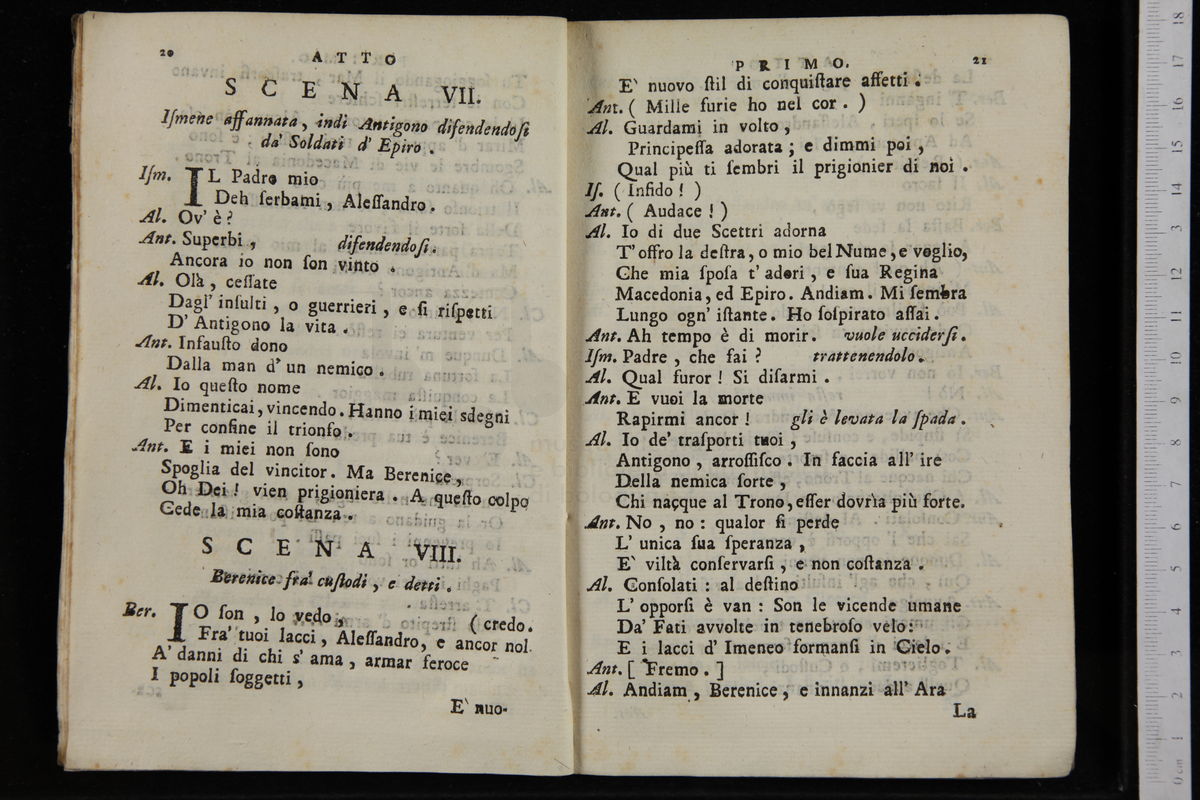 20
ATTO
SCENA VII.
Iſmene affannata, indi Antigono difendendoſi
da' Soldati d' Epiro.
Iſm. IL Padre mio
Deh ſerbami, Aleſſandro.
Al. Ov' è?
Ant. Superbi, difendendoſi.
Ancora io non ſon vinto.
Al. Olà, ceſſate
Dagl' inſulti, o guerrieri, e ſi riſpetti
D' Antigono la vita.
Ant. Infauſto dono
Dalla man d' un nemico.
Al. Io queſto nome
Dimenticai, vincendo. Hanno i miei sdegni
Per confine il trionfo.
Ant. E i miei non ſono
Spoglia del vincitor. Ma Berenice,
Oh Dei! vien prigioniera. A queſto colpo
Cede la mia coſtanza.
SCENA VIII.
Berenice fra' cuſtodi, e detti.
Ber. IO ſon, lo vedo, (credo.
Fra' tuoi lacci, Aleſſandro, e ancor nol
A' danni di chi s' ama, armar feroce
I popoli ſoggetti,
E' nuo-
PRIMO.
21
E' nuovo ſtil di conquiſtare affetti.
Ant. (Mille furie ho nel cor.)
Al. Guardami in volto,
Principeſſa adorata; e dimmi poi,
Qual più ti ſembri il prigionier di noi.
Iſ. (Infido!)
Ant. (Audace!)
Al. Io di due Scettri adorna
T' offro la deſtra, o mio bel Nume, e voglio,
Che mia ſpoſa t' adori, e ſua Regina
Macedonia, ed Epiro. Andiam. Mi ſembra
Lungo ogn' iſtante. Ho ſoſpirato aſſai.
Ant. Ah tempo è di morir. vuole ucciderſi.
Iſm. Padre, che fai? trattenendolo.
Al. Qual furor! Si diſarmi.
Ant. E vuoi la morte
Rapirmi ancor! gli è levata la ſpada.
Al. Io de' traſporti tuoi,
Antigono, arroſſiſco. In faccia all' ire
Della nemica ſorte,
Chi nacque al Trono, eſſer dovrìa più forte.
Ant. No, no: qualor ſi perde
L' unica ſua ſperanza,
E' viltà conſervarſi, e non coſtanza.
Al. Conſolati: al deſtino
L' opporſi è van: Son le vicende umane
Da' Fati avvolte in tenebroſo velo:
E i lacci d' Imeneo formanſi in Cielo.
Ant. [Fremo.]
Al. Andiam, Berenice, e innanzi all' Ara
La